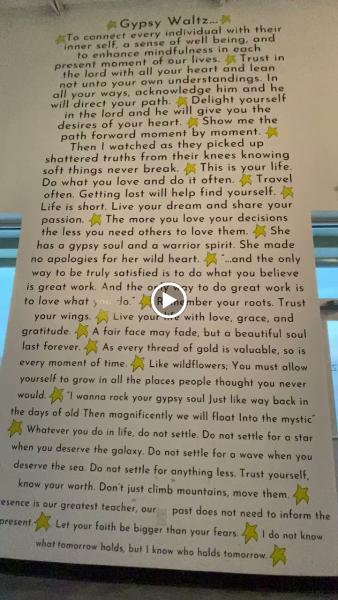 Gypsy Waltz...
To connect every individual with their
inner self, a sense of well being, and
to enhance mindfulness in each
present moment of our lives. Trust in
the lord with all your heart and lean
not unto your own understandings. In
all your ways, acknowledge him and he
will direct your path. Delight yourself
in the lord and he will give you the
desires of your heart. Show me the
path forward moment by moment.
Then I watched as they picked up
shattered truths from their knees knowing
soft things never break. This is your life.
Do what you love and do it often. Travel
often. Getting lost will help find yourself.
Life is short. Live your dream and share your
passion. The more you love your decisions
the less you need others to love them. She
has a gypsy soul and a warrior spirit. She made
no apologies for her wild heart. "...and the only
way to be truly satisfied is to do what you believe
is great work. And the only way to do great work is
to love what you do." Remember your roots. Trust
your wings. Live your life with love, grace, and
gratitude. A fair face may fade, but a beautiful soul
last forever. As every thread of gold is valuable, so is
every moment of time. Like wildflowers; You must allow
yourself to grow in all the places people thought you never
would. "I wanna rock your gypsy soul Just like way back in
the days of old Then magnificently we will float Into the mystic"
Whatever you do in life, do not settle. Do not settle for a star
when you deserve the galaxy. Do not settle for a wave when you
deserve the sea. Do not settle for anything less. Trust yourself,
know your worth. Don't just climb mountains, move them.
esence is our greatest teacher, our past does not need to inform the
present. Let your faith be bigger than your fears. I do not know
what tomorrow holds, but I know who holds tomorrow.